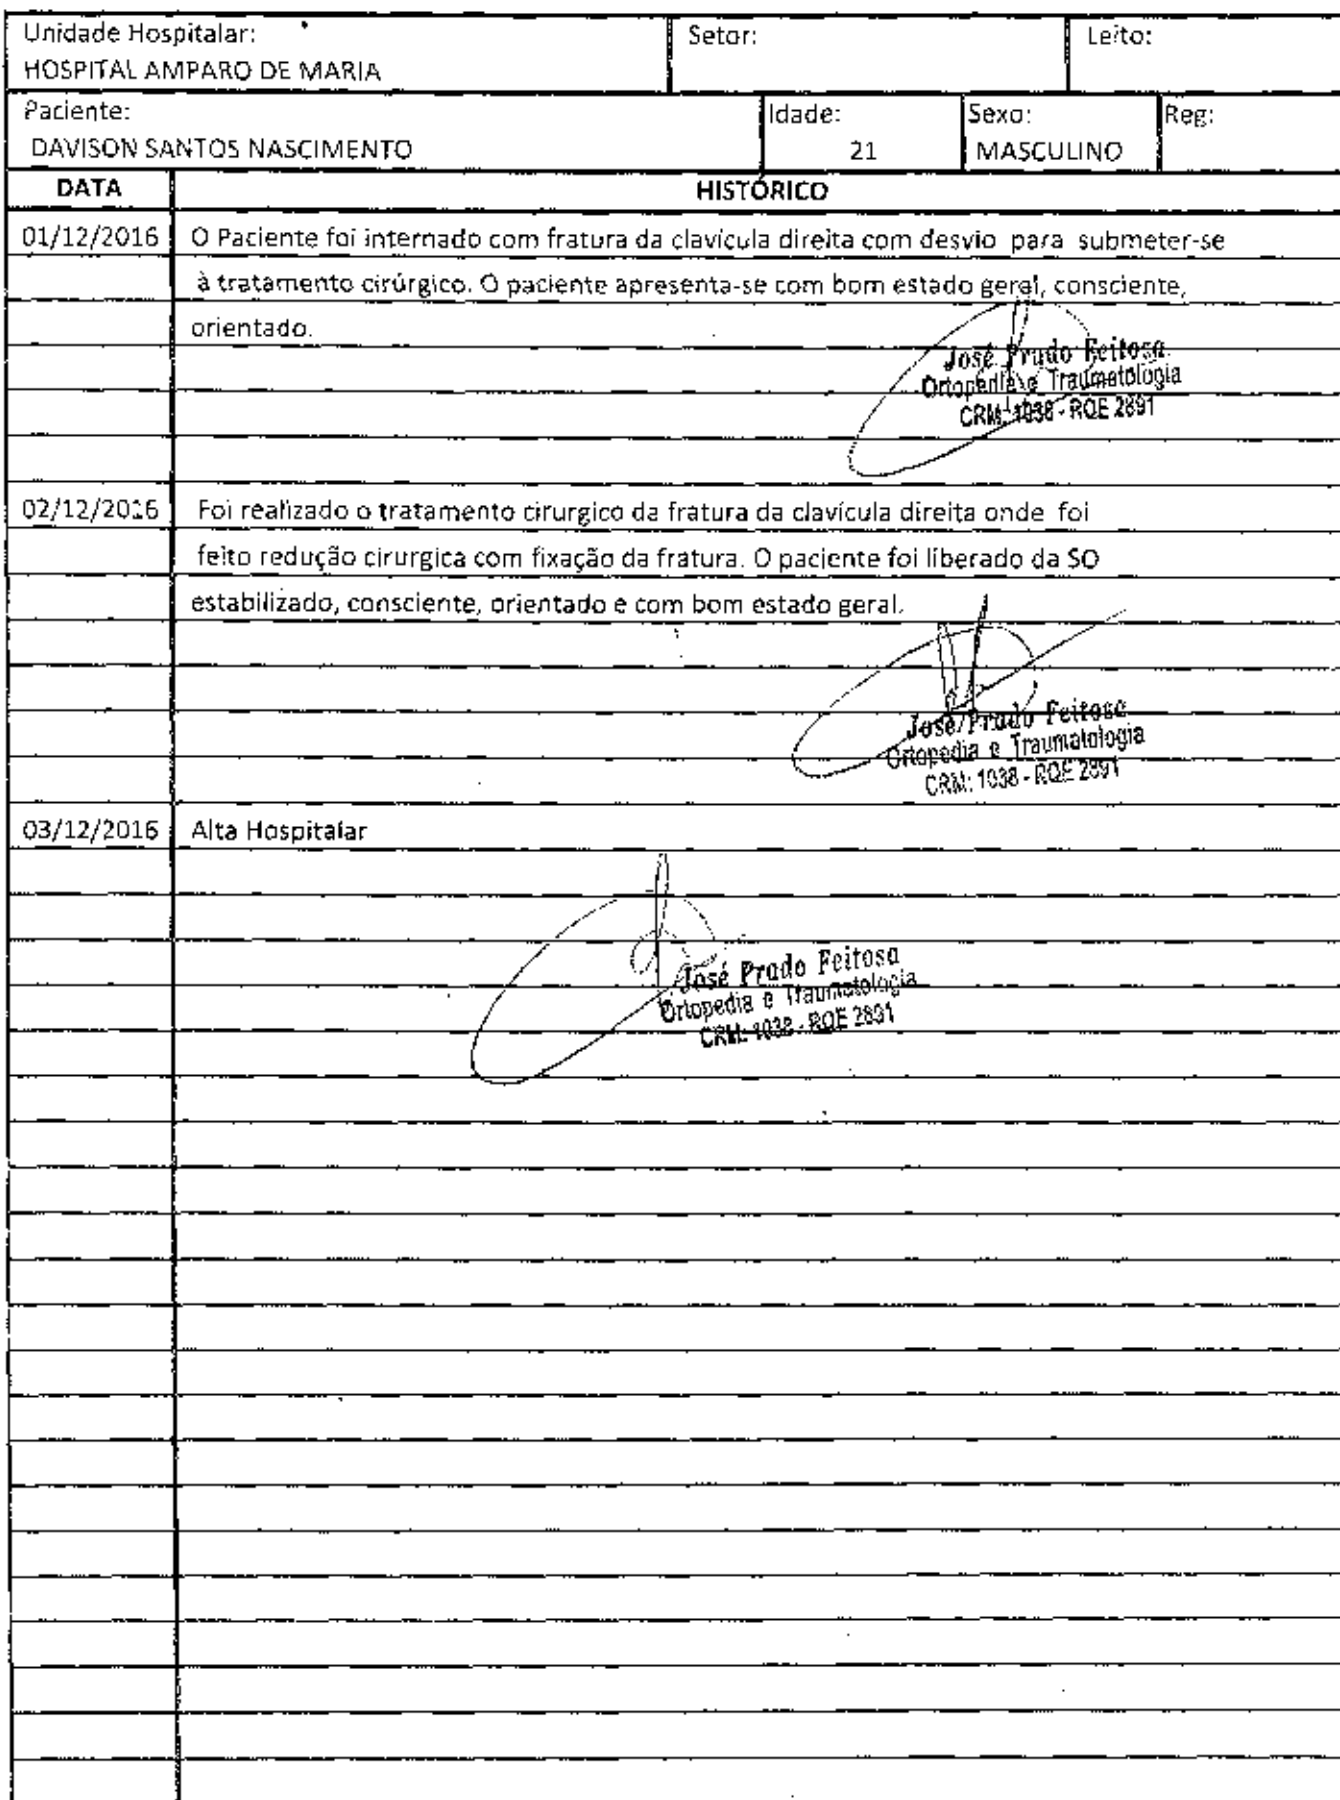 Unidade Hospitalar:
HOSPITAL AMPARO DE MARIA
Setor:
Leito:
Paciente:
DAVISON SANTOS NASCIMENTO
Idade:
21
Sexo:
MASCULINO
Reg:
DATA
HISTÓRICO
01/12/2016
O Paciente foi internado com fratura da clavícula direita com desvio para submeter-se
à tratamento cirúrgico. O paciente apresenta-se com bom estado geral, consciente,
orientado.
José Prado Feitosa
Ortopedia e Traumatologia
CRM: 1038 - RQE 2891
02/12/2016
Foi realizado o tratamento cirurgico da fratura da clavícula direita onde foi
feito redução cirurgica com fixação da fratura. O paciente foi liberado da SO
estabilizado, consciente, orientado e com bom estado geral.
José Prado Feitosa
Ortopedia e Traumatologia
CRM: 1038 - RQE 2891
03/12/2016
Alta Hospitalar
José Prado Feitosa
Ortopedia e Traumatologia
CRM: 1038 - RQE 2891